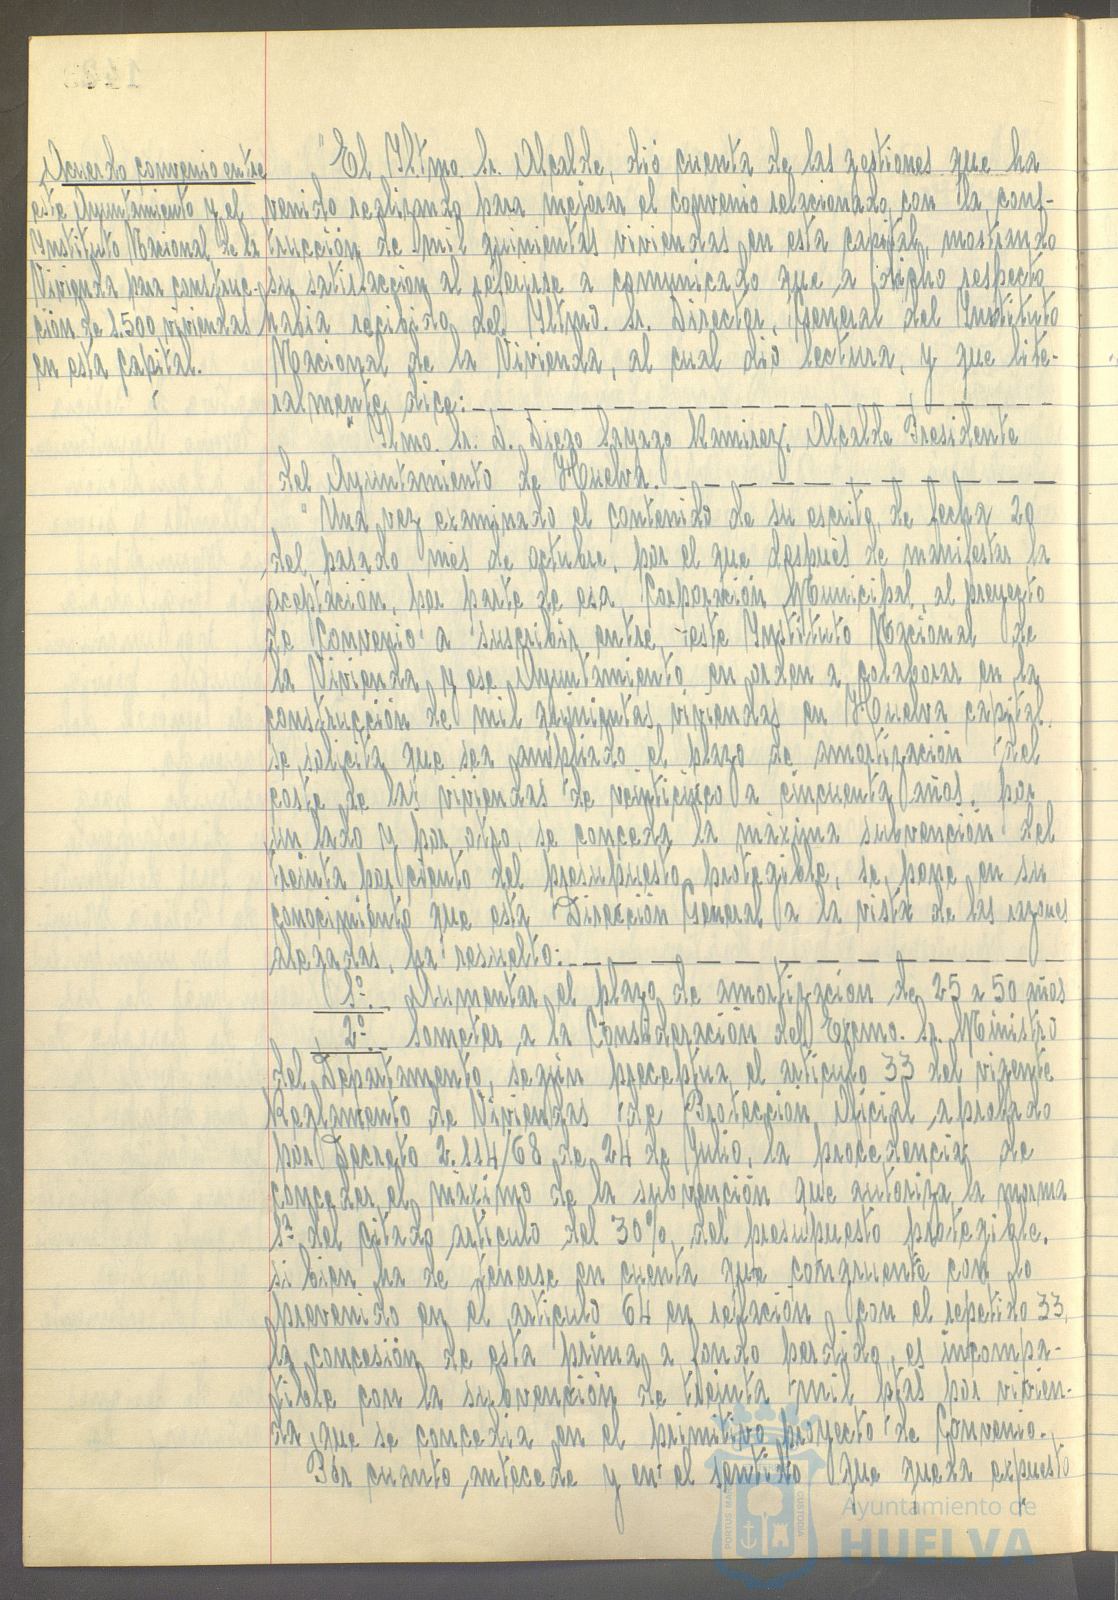 Acuerdo convenio entre
este Ayuntamiento y el
Instituto Nacional de la
Vivienda para construc-
ción de 1.500 viviendas
en esta capital.
"El Iltmo. Sr. Alcalde, dió cuenta de las gestiones que ha
venido realizando para mejorar el convenio relacionado con la cons-
trucción de mil quinientas viviendas en esta capital, mostrando
su satisfacción al referirse a comunicado que a dicho respecto
había recibido del Iltmo. Sr. Director General del Instituto
Nacional de la Vivienda, al cual dió lectura, y que lite-
ralmente dice:
"Ilmo. Sr. D. Diego Sayago Ramírez, Alcalde Presidente
del Ayuntamiento de Huelva.
"Una vez examinado el contenido de su escrito, de fecha 29
del pasado mes de octubre, por el que después de manifestar la
aceptación, por parte de esa Corporación Municipal, al proyecto
de Convenio a suscribir entre este Instituto Nacional de
la Vivienda y ese Ayuntamiento en orden a colaborar en la
construcción de mil quinientas viviendas en Huelva capital,
se solicita que sea ampliado el plazo de amortización del
coste de las viviendas de veinticinco a cincuenta años, por
un lado y por otro, se conceda la máxima subvención del
treinta por ciento del presupuesto protegible, se pone en su
conocimiento que esta Dirección General a la vista de las razones
alegadas, ha resuelto:
1º.- Aumentar el plazo de amortización de 25 a 50 años
2º.- Someter a la Consideración del Excmo. Sr. Ministro
del Departamento, según preceptua el artículo 33 del vigente
Reglamento de Viviendas de Protección Oficial aprobado
por Decreto 2.114/68 de 24 de Julio, la procedencia de
conceder el máximo de la subvención que autoriza la norma
1ª del citado artículo del 30%, del presupuesto protegible,
si bien ha de tenerse en cuenta que congruente con lo
prevenido en el artículo 64 en relación con el repetido 33,
la concesión de esta prima a fondo perdido, es incompa-
tible con la subvención de treinta mil ptas por vivien-
da, que se concedía en el primitivo proyecto de Convenio.
Por cuanto antecede y en el sentido que queda expuesto
PORTUS MARIS
CUSTODIA
Ayuntamiento de
HUELVA